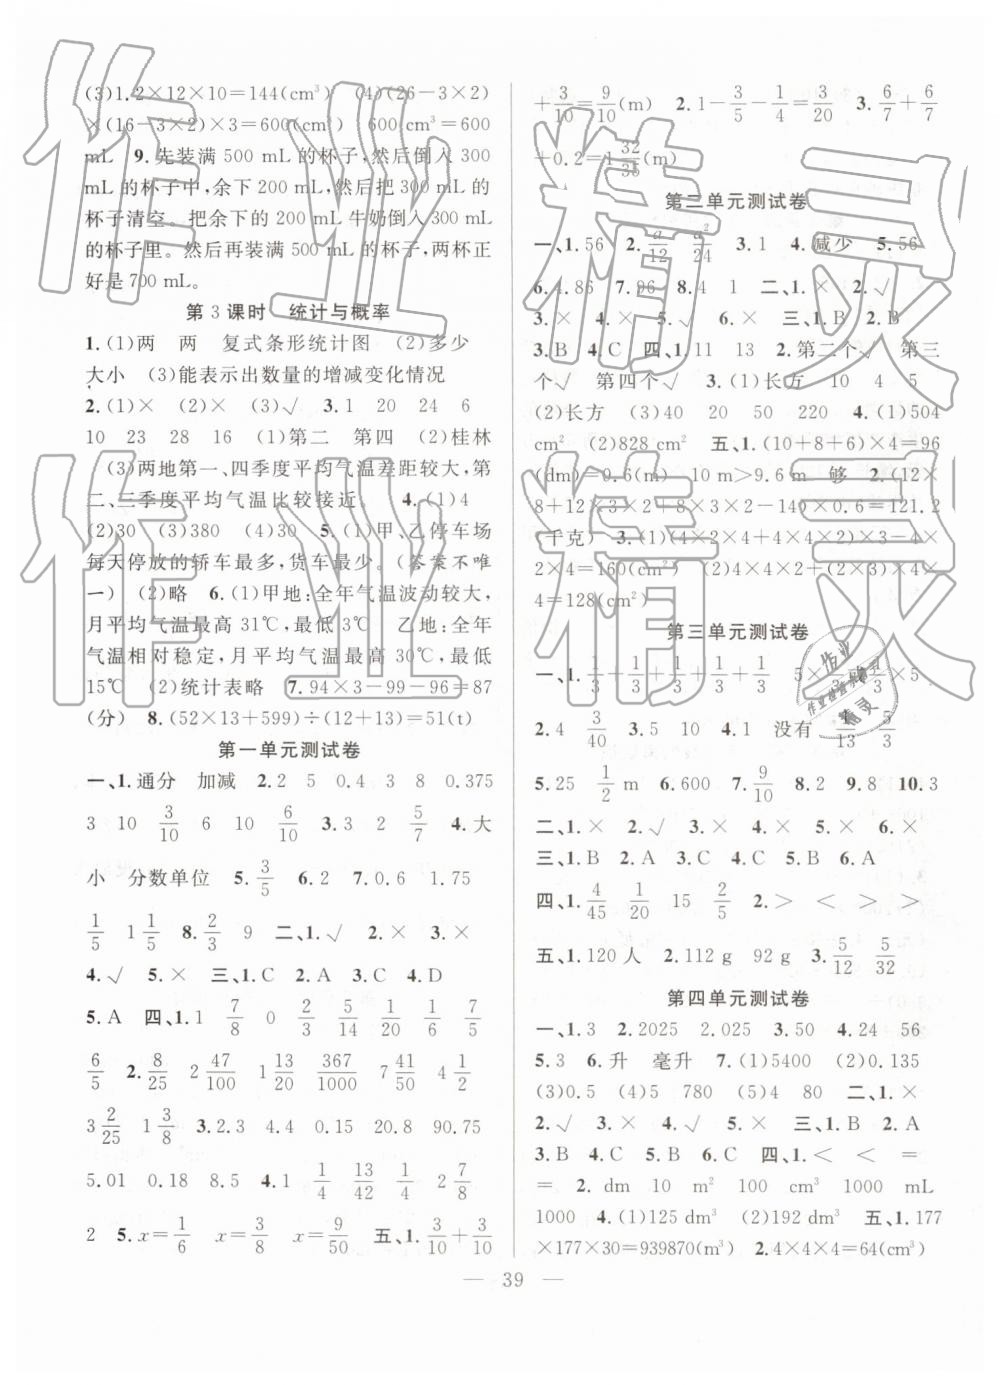 (3)1.2×12×10=144(cm³) (4)(26-3×2)
×(16-3×2)×3=600(cm³) 600 cm³=600
mL 9.先装满 500 mL 的杯子,然后倒入 300
mL 的杯子中,余下 200 mL,然后把 300 mL 的
杯子清空。把余下的 200 mL 牛奶倒入 300 mL
的杯子里。然后再装满 500 mL 的杯子,两杯正
好是 700 mL。
第 3 课时 统计与概率
1.(1)两 两 复式条形统计图 (2)多少
大小 (3)能表示出数量的增减变化情况
2.(1)× (2)× (3)√ 3.1 20 24 6
10 23 28 16 (1)第二 第四 (2)桂林
(3)两地第一、四季度平均气温差距较大,第
二、三季度平均气温比较接近。 4.(1)4
(2)30 (3)380 (4)30 5.(1)甲、乙停车场
每天停放的轿车最多,货车最少。(答案不唯
一) (2)略 6.(1)甲地:全年气温波动较大,
月平均气温最高 31℃,最低 3℃ 乙地:全年
气温相对稳定,月平均气温最高 30℃,最低
15℃ (2)统计表略 7.94×3-99-96=87
(分) 8.(52×13+599)÷(12+13)=51(t)
第一单元测试卷
一、1.通分 加减 2.2 5 0.4 3 8 0.375
3 10 3/10 6 10 6/10 3.3 2 5/7 4.大
小 分数单位 5.3/5 6.2 7.0.6 1.75
1/5 1 1/5 8.2/3 9 二、1.√ 2.× 3.×
4.√ 5.× 三、1.C 2.A 3.C 4.D
5.A 四、1.1 7/8 0 2/3 5/14 1/20 1/6 7/5
6/5 2.8/25 2 47/100 1 13/20 367/1000 7 41/50 4 1/2
3 2/25 1 3/8 3.2.3 4.4 0.15 20.8 90.75
5.01 0.18 8.5 4.1 1/4 13/42 1/4 2 7/8
2 5.x=1/6 x=3/8 x=9/50 五、1.3/10+3/10
+3/10=9/10(m) 2.1-3/5-1/4=3/20 3.6/7+6/7
+0.2=1 32/35(m)
第二单元测试卷
一、1.56 2.a/12 a²/24 3.1 4.减少 5.56
6.4.86 7.96 8.4 1 二、1.× 2.√
3.× 4.× 5.√ 6.× 三、1.B 2.B
3.B 4.C 四、1.11 13 2.第二个√ 第三
个√ 第四个√ 3.(1)长方 10 4 5
(2)长方 (3)40 20 50 220 4.(1)504
cm² (2)828 cm² 五、1.(10+8+6)×4=96
(dm)=9.6(m) 10 m>9.6 m 够 2.(12×
8+12×3×2+8×3×2-14)×0.6=121.2
(千克) 3.(1)(4×2×4+4×4×2)×3-4×
2×4=160(cm²) (2)4×4×2+(2×3)×4×
4=128(cm²)
第三单元测试卷
一、1.1/3+1/3+1/3+1/3+1/3 5×1/3 1/3×5
2.4 3/40 3.0 1 4.1 没有 1/13 5/3
5.25 1/2 m 6.600 7.9/10 8.2 9.8 10.3
二、1.× 2.√ 3.× 4.× 5.× 6.×
三、1.B 2.A 3.A 4.C 5.B 6.A
四、1.4/45 1/20 15 2/5 2.> < > >
五、1.120 人 2.112 g 92 g 3.5/12 5/32
第四单元测试卷
一、1.3 2.2025 2.025 3.50 4.24 56
5.3 6.升 毫升 7.(1)5400 (2)0.135
(3)0.5 (4)5 780 (5)4 80 二、1.×
2.√ 3.× 4.√ 5.√ 三、1.B 2.A
3.B 4.C 5.B 6.C 四、1.< < =
= 2.dm 10 m² 100 cm³ 1000 mL
1000 4.(1)125 dm³ (2)192 dm³ 五、1.177
×177×30=939870(m³) 2.4×4×4=64(cm³)
— 39 —
作业
精灵
作业
精灵
作业
精灵